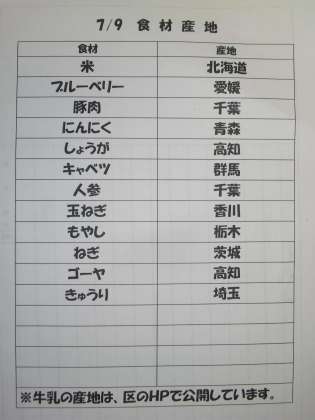 7/9 食材産地
食材 産地
米 北海道
ブルーベリー 愛媛
豚肉 千葉
にんにく 青森
しょうが 高知
キャベツ 群馬
人参 千葉
玉ねぎ 香川
もやし 栃木
ねぎ 茨城
ゴーヤ 高知
きゅうり 埼玉
※牛乳の産地は、区のHPで公開しています。